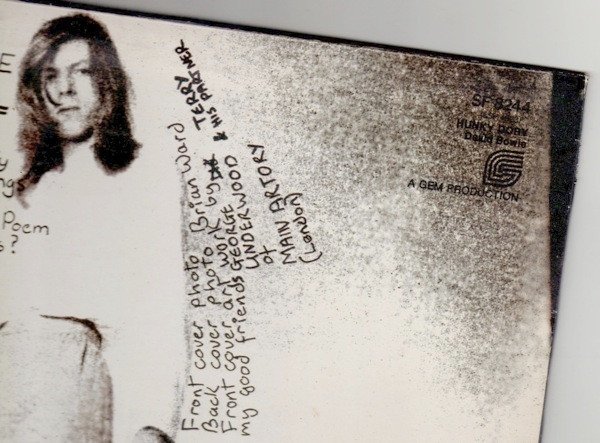 E
=
y
ngs
Poem
s?
Front cover photo Brian Ward
Back cover photo by TERRY & HIS PARTNER
Front cover art work GEORGE
my good friends UNDERWOOD
of
MAIN ARTORY
(London)
SF 8244
HUNKY DORY
David Bowie
A GEM PRODUCTION